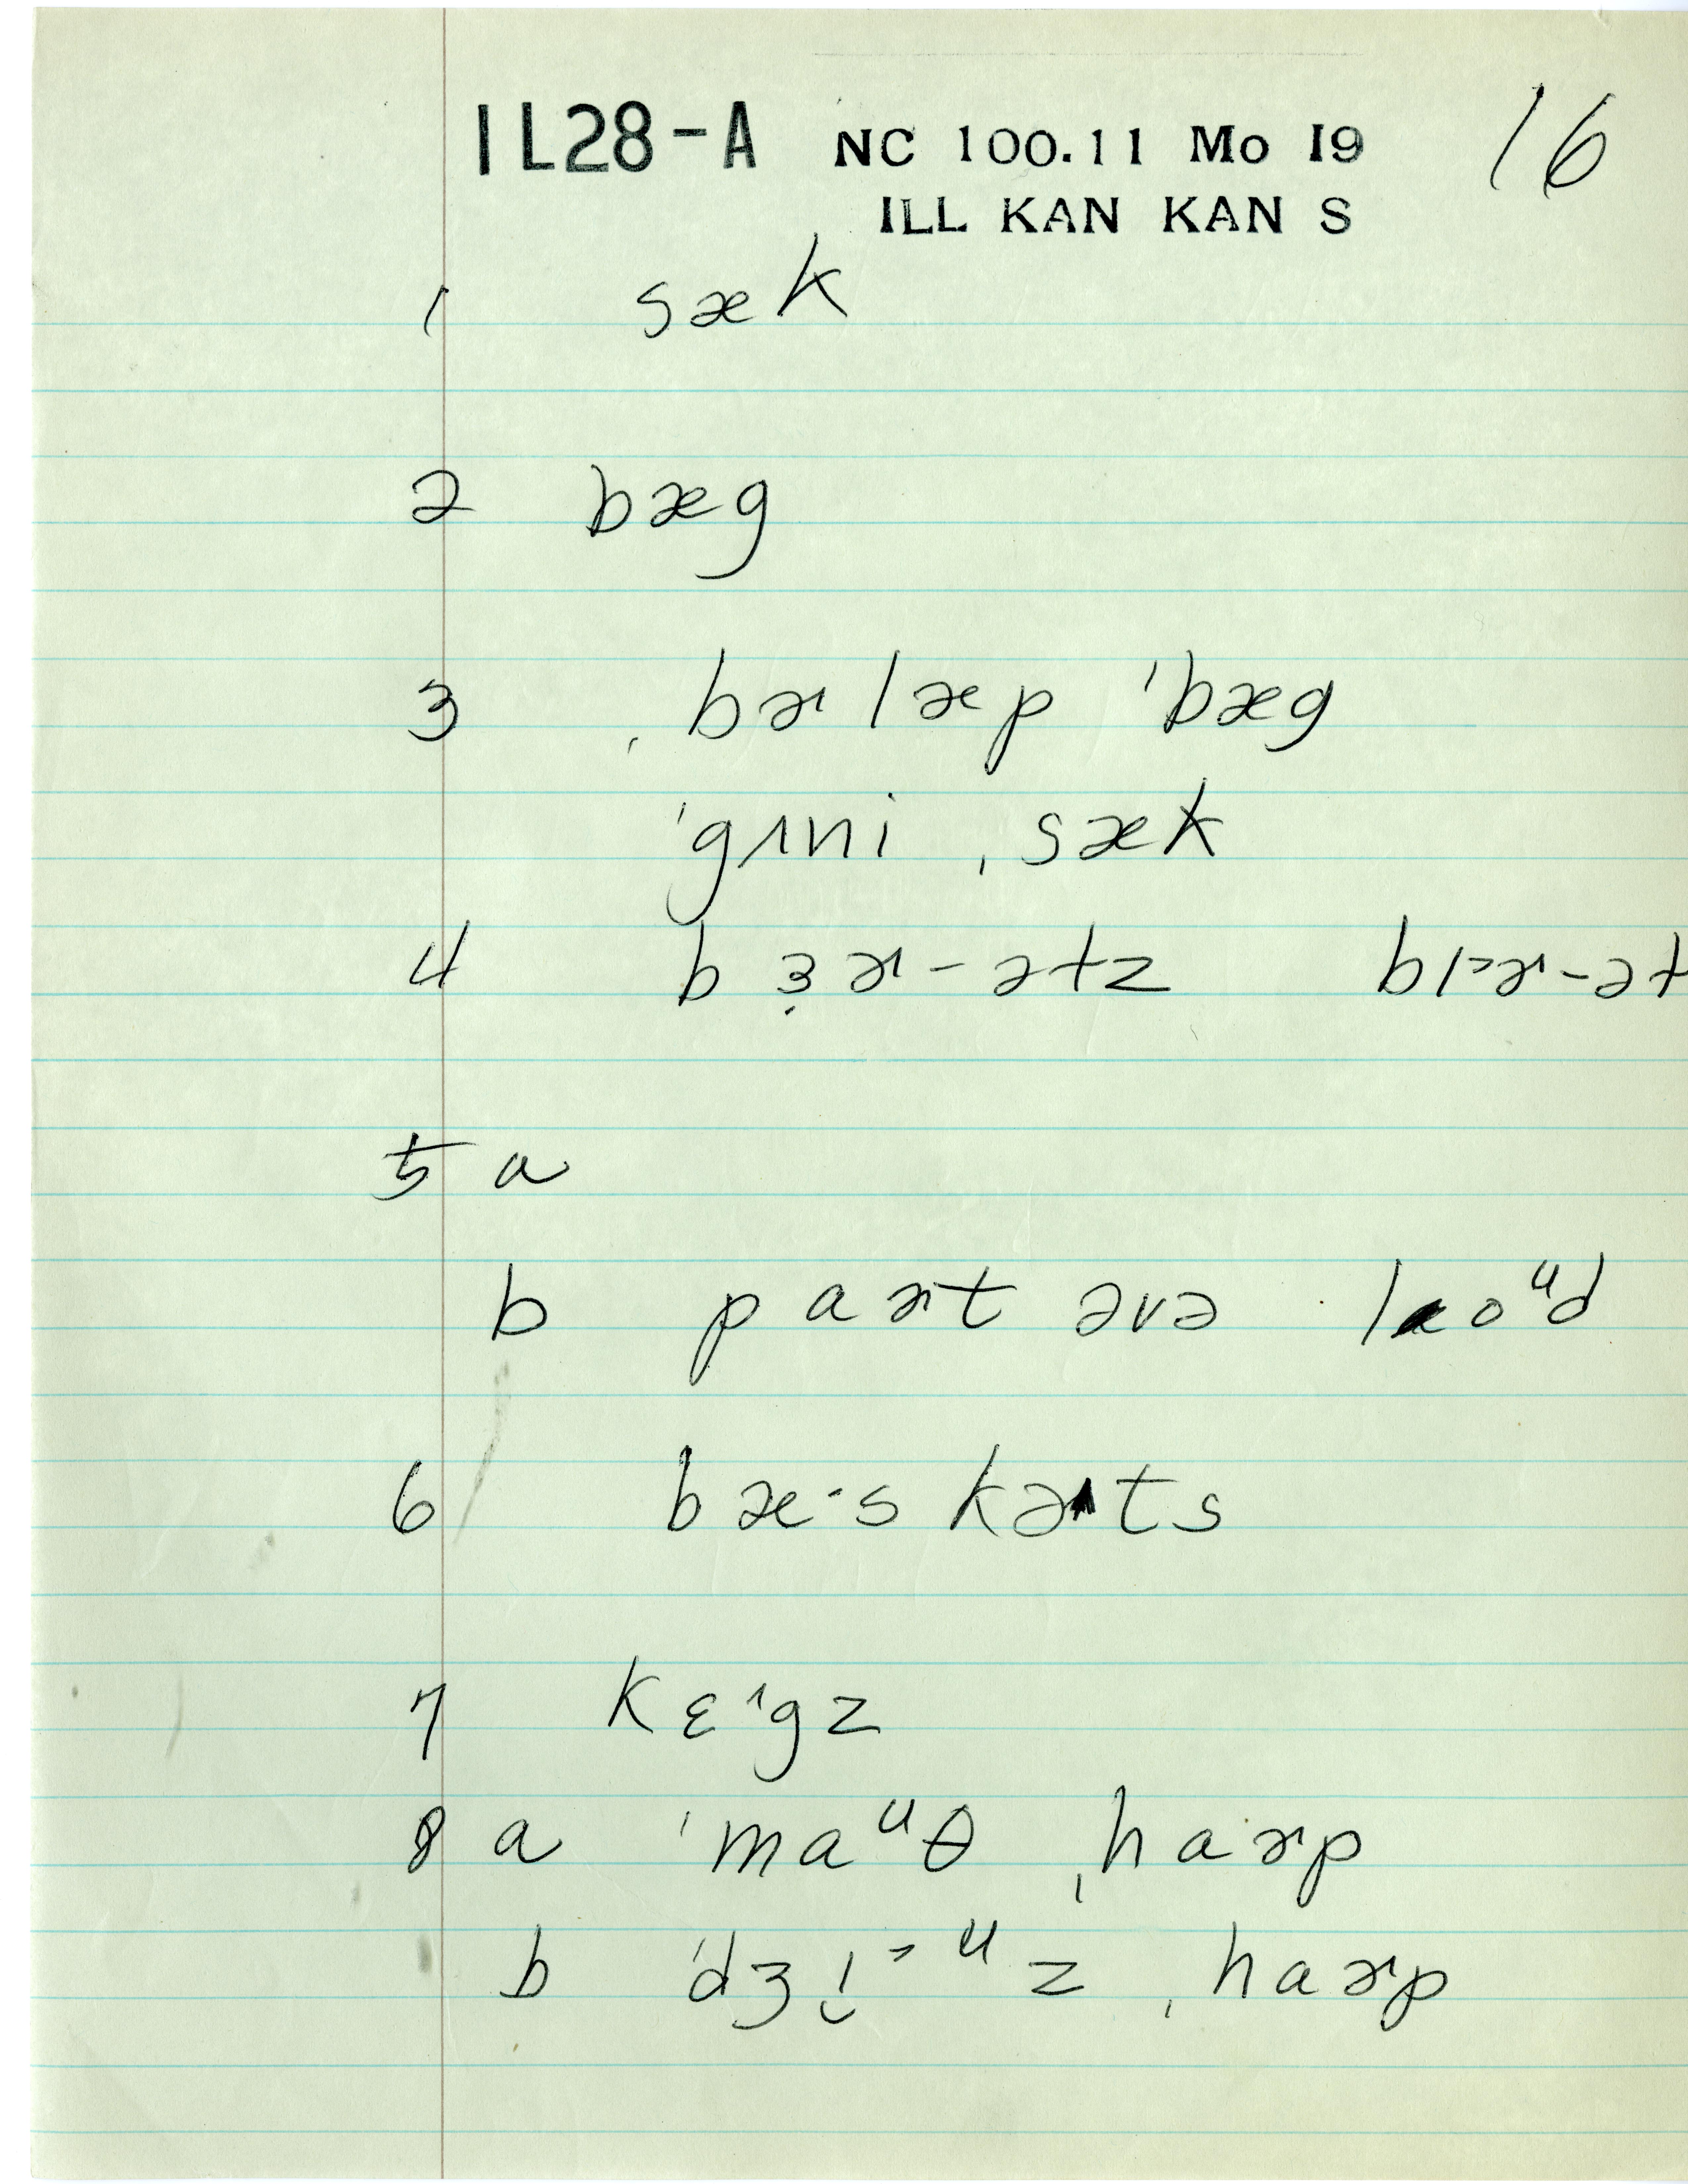 1L28-A NC 100.11 Mo I9 16
ILL KAN KAN S
1 sæk
2 bæg
3 ˌbɚlæp ˈbæg
ˈgʌni ˌsæk
4 b ɜ̣ɚ-ətz
5 a
b paɚt əvə loᵘd
6
7 kɛᶦgz
8 a ˈmaᵘθ ˌhaɚp
b ˈdʒi̮˃ᵘz ˌhaɚp